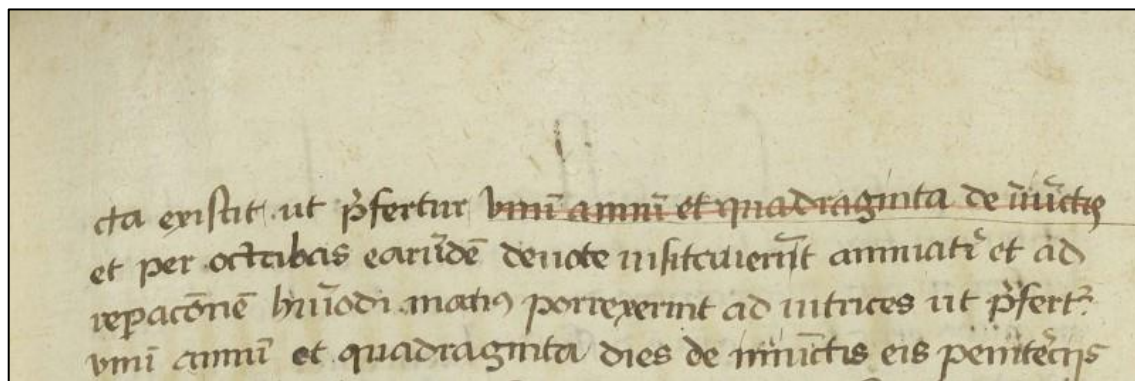 cta existit ut p̄fertur vnū annū et quadraginta de iniūctis
et per octabas earūdē deuote uisitauerīt annuatī et ad
rep̱acōnē hmōi man9 porrexerint ad iutrices ut p̄fert᷑
vnū annū et quadraginta dies de iniūctis eis penitēciis